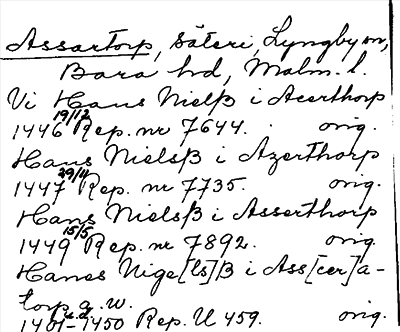 Assartorp, säteri, Lyngby sn,
Bara hd, Malm. l.
Vi Hans Nielß i Acerthorp
1446 19/12 Rep. nr 7644. orig.
Hans Nielsß i Azerthorp
1447 29/11 Rep. nr 7735. orig.
Hans Nielsß i Asserthorp
1449 15/5 Rep. nr 7892. orig.
Hanes Nige[ls]ß i Ass[cer]a-
torp a. w.
1401-1450 u.d. Rep. U 459. orig.